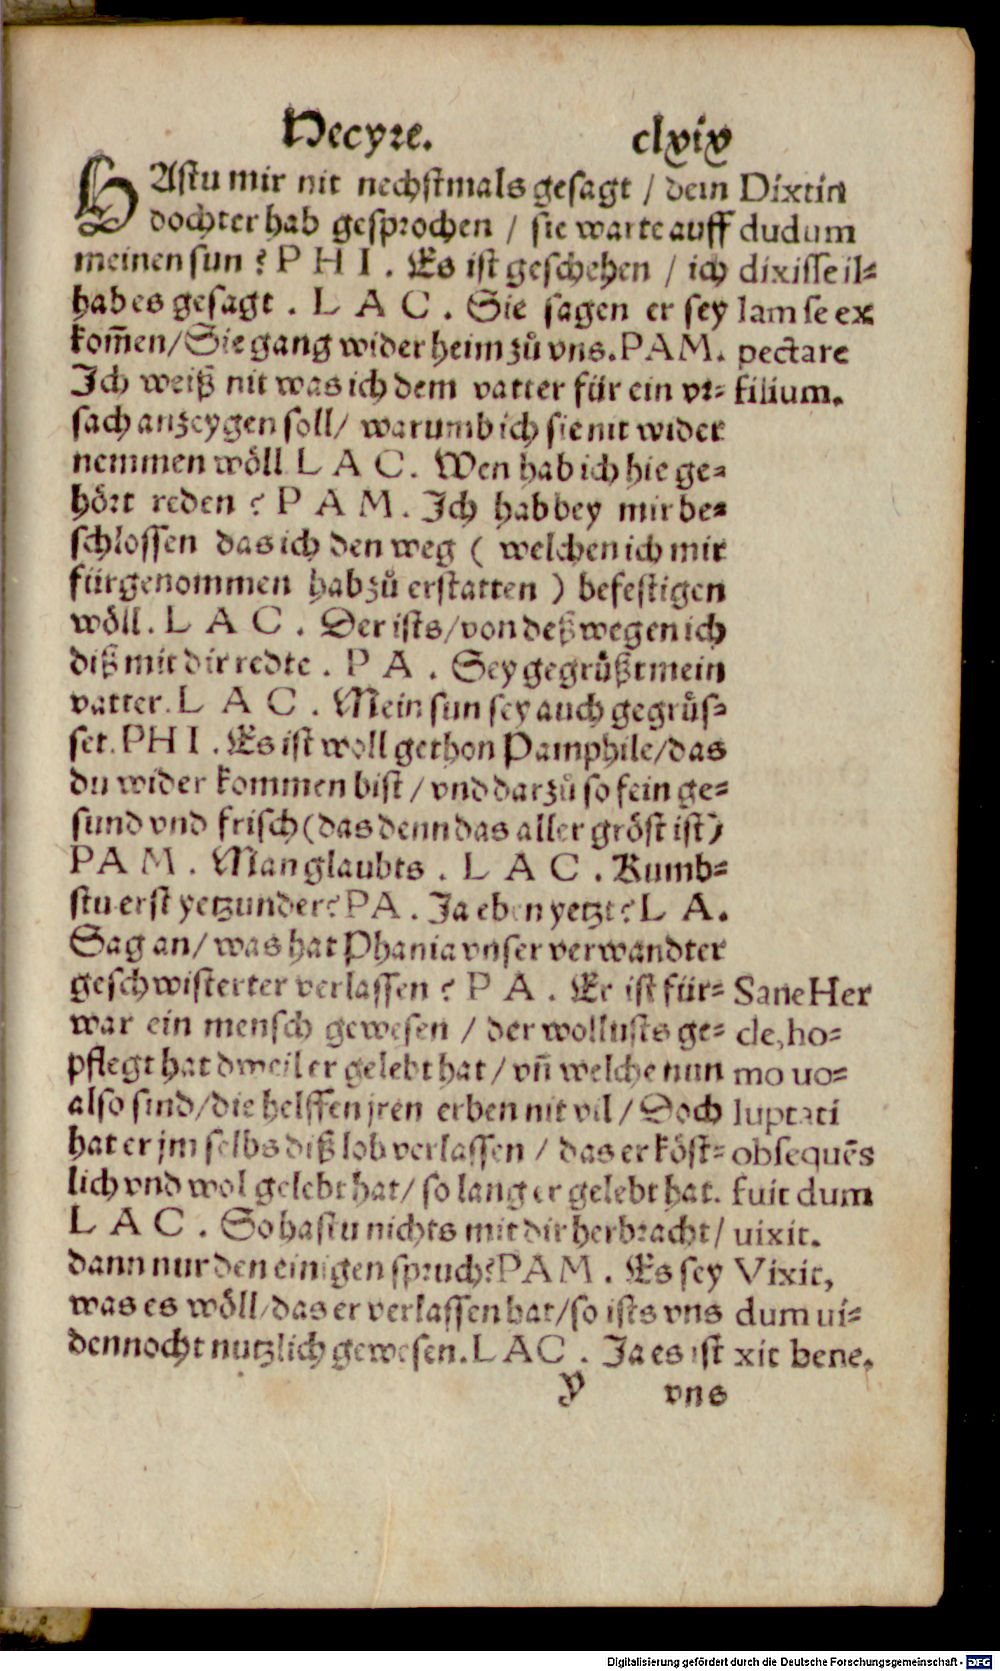 Hecyre. clxix
HAstu mir nit nechstmals gesagt / dein
dochter hab gesprochen / sie warte auff
meinen sun ? P H I . Es ist geschehen / ich
hab es gesagt . L A C . Sie sagen er sey
kom̄en/ Sie gang wider heim zů vns. PAM.
Ich weiß nit was ich dem vatter für ein vr-
sach anzeygen soll/ warumb ich sie nit wider
nemmen wöll L A C . Wen hab ich hie ge-
hört reden ? P A M . Ich hab bey mir be-
schlossen das ich den weg ( welchen ich mir
fürgenommen hab zů erstatten ) befestigen
wöll. L A C . Der ists/ von deß wegen ich
diß mit dir redte . P A . Sey gegrüßt mein
vatter. L A C . Mein sun sey auch gegrüs-
set. PHI . Es ist woll gethon Pamphile/ das
du wider kommen bist / vnd darzů so fein ge-
sund vnd frisch (das denn das aller gröst ist)
PAM . Man glaubts . L A C . Kumb-
stu erst yetzunder? PA . Ja eben yetzt? L A.
Sag an/ was hat Phania vnser verwandter
geschwisterter verlassen ? P A . Er ist für-
war ein mensch gewesen / der wollusts ge-
pflegt hat dweil er gelebt hat / vñ welche nun
also sind/ die helffen jren erben nit vil / Doch
hat er jm selbs diß lob verlassen / das er köst-
lich vnd wol gelebt hat/ so lang er gelebt hat.
L A C . So hastu nichts mit dir herbracht/
dann nur den einigen spruch? PAM . Es sey
was es wöll/ das er verlassen hat/ so ists vns
dennocht nutzlich gewesen. LAC . Ja es ist
y vns
Dixtin
dudum
dixisse il-
lam se ex
pectare
filium.
Sane Her
cle, ho-
mo uo-
luptati
obsequẽs
fuit dum
uixit.
Vixit,
dum ui-
xit bene.
Digitalisierung gefördert durch die Deutsche Forschungsgemeinschaft - DFG